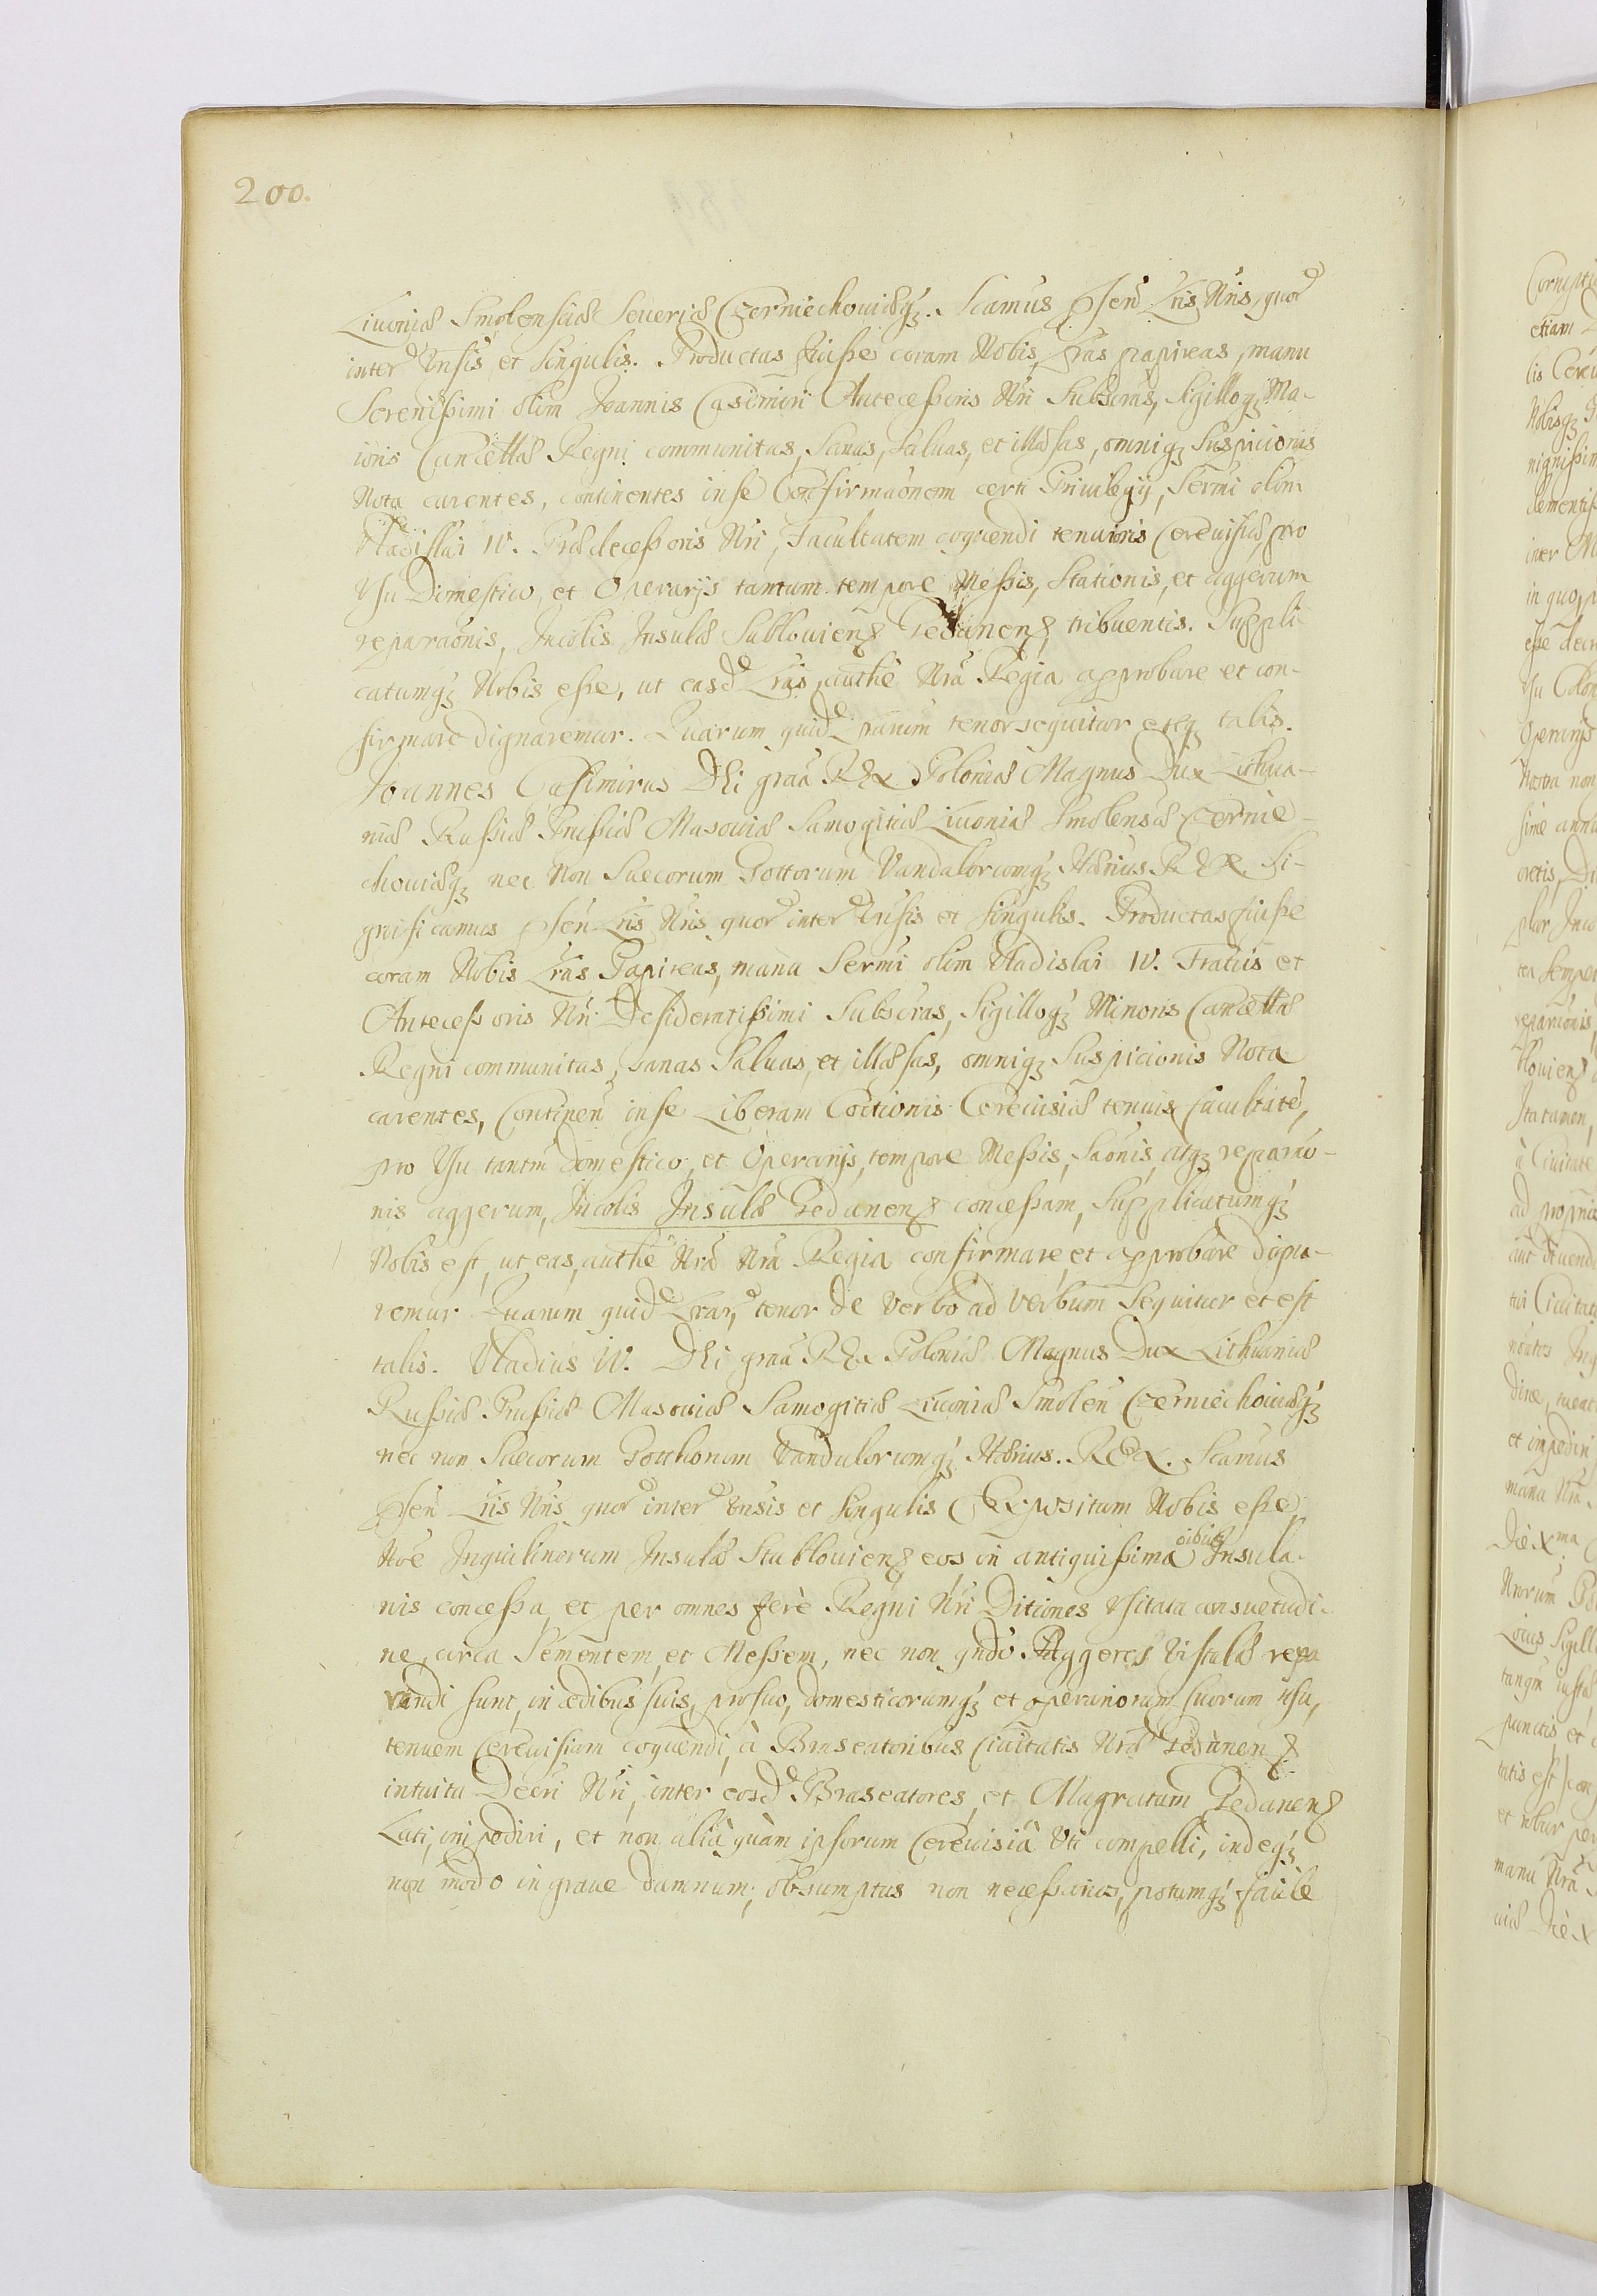 200.
Livoniæ Smolensciæ Severiæ Czerniechoviæq3. Scamus Psen Lris Nris, quor
inter Vnsis et singulis. Productas fuisse coram Nobis, Lras papireas, manu
Serenissimi olim Joannis Casimiri Antecessoris Nri Subscras, Sigilloq3 Ma-
ioris Cancellæ Regni communitas, Sanas, Salvas, et illæsas, omniq3 Suspicionis
Nota carentes, continentes in se Confirmaonem certi Privilegij, Sermi olim
Vladislai IV. Prædecessoris Nri, Facultatem coquendi tenuioris Cerevisiæ, pro
Vsu Domestico, et Operarijs tantum tempore Messis, Stationis, et aggerum
reparaonis, Incolis Insulæ Sublouien Gedanen tribuentis. Suppli
catumq3 Nobis esse, ut easd Lras, authe Nra Regia approbare et con-
firmare dignaremur. Quarum quid Lrarum tenor sequitur estq3 talis.
Joannes Casimirus Dei graa Rex Poloniæ Magnus Dux Lithua-
niæ Russiæ Prussiæ Masoviæ Samogitiæ Livoniæ Smolensæ Czernie-
choviæq3 nec Non Suecorum Gottorum Vandalorumq3 Hærius REX. Si-
gnificamus Psen Lris Nris quor inter Vnsis et singulis. Productas fuisse
coram Nobis Lras Papireas, manu Sermi olim Vladislai IV. Fratris et
Antecessoris Nri Desideratissimi Subscras, Sigilloq3 Minoris Cancellæ
Regni communitas, sanas Salvas, et illæsas, omniq3 Suspicionis Nota
carentes, Continen in se Liberam Coctionis Cerevisiæ tenuis facultate,
pro Vsu tantm domestico, et Operarijs, tempore Messis, Saonis, atq3 reparao-
nis aggerum, Incolis Insulæ Gedanen concessam, Supplicatumq3
Nobis est, ut eas, authe Nra Nra Regia confirmare, et approbare digna-
remur. Quarum quid Lrar, tenor de verbo ad verbum Sequitur et est
talis. Vladius IV. Dei graa Rex Poloniæ Magnus Dux Lithuaniæ
Russiæ Prussiæ Masoviæ Samogitiæ Livoniæ Smolen Czerniechoviæq3
nec non Suecorum Gotthorum Vandalorumq3 Hærius. REX. Scamus
Psen Lris Nris quor inter Vnsis et singulis Expositum Nobis esse
Noe Inquilinorum Insulæ Stublouien eos in antiquissima oibus Insula-
nis concessa et per omnes fere Regni Nri Ditiones vsitata consuetudi-
ne, circa Sementem, et Messem, nec non qndo Aggeres Vistulæ repa
randi sunt, in ædibus suis, pro suo, domesticorumq3 et operariorum suorum usu,
tenuem Cerevisiam coquendi, à Braseatoribus Civitatis Nræ Gedanen
intuitu Decri Nri, inter eosd Braseatores, et Magratum Gedanen
Lati, impediri, et non aliâ quàm ipsorum Cerevisiâ Vti compelli, indeq3
non modo in grave damnum, ob sumptus non necessarios, potumq3 facile